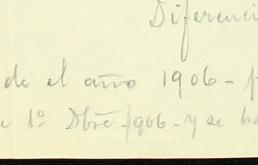 Diferenci
de el año 1906 - p
e 1º Dbre 1906 - y se ha